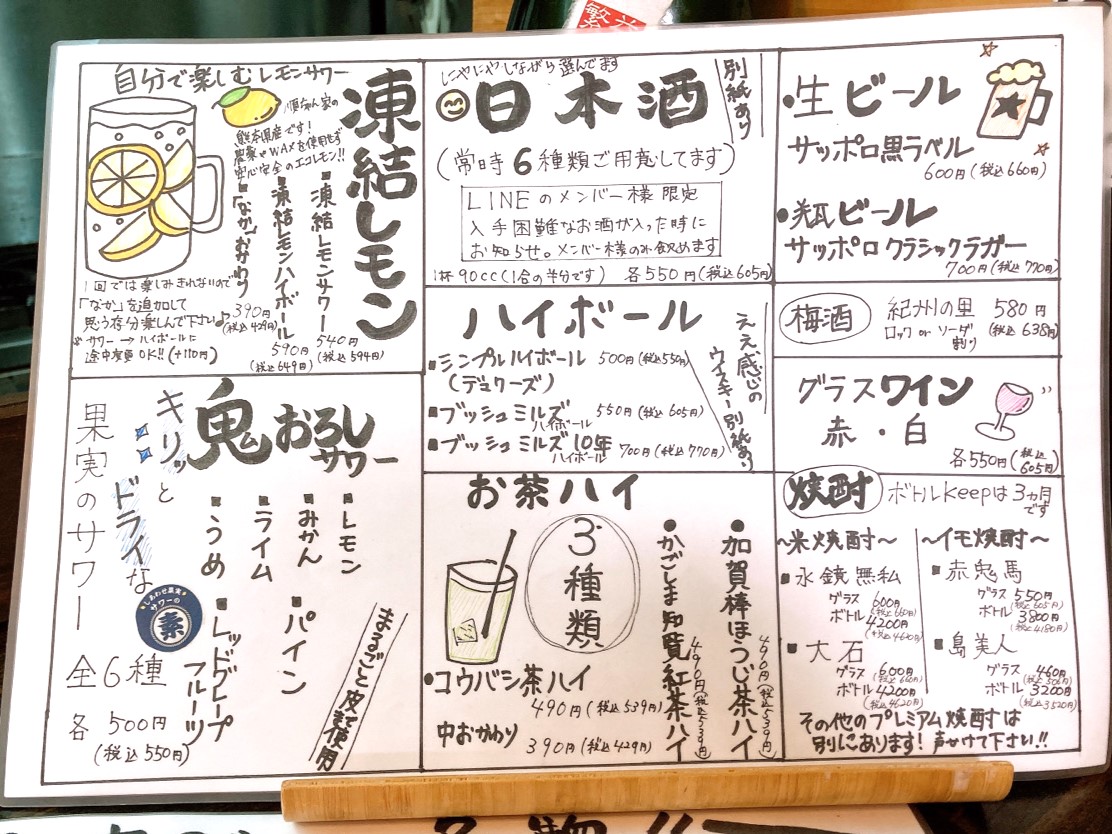 自分で楽しむレモンサワー
凍結レモン
順ちゃん家の
熊本県産です!
農薬やWAXを使用せず
安心安全のエコレモン!!
■凍結レモンサワー
540円
(税込594円)
■凍結レモンハイボール
590円
(税込649円)
■「なか」おかわり
390円
(税込429円)
1回では楽しみきれないので
「なか」を追加して
思う存分楽しんで下さい♪
サワー→ハイボールに
途中変更OK!!(+110円)
キリッと
ドライな
果実のサワー
鬼おろし
サワー
■レモン
■みかん
■ライム
■うめ
■パイン
■レッドグレープ
フルーツ
しあわせ果実
サワーの
素
全6種
各500円
(税込550円)
まるごと皮まで使用
にやにやしながら選んでます
日本酒
別紙あり
(常時6種類ご用意してます)
LINEのメンバー様限定
入手困難なお酒が入った時に
お知らせ。メンバー様のみ飲めます
1杯90cc(1合の半分です) 各550円(税込605円)
ハイボール
■シンプルハイボール 500円(税込550円)
(デュワーズ)
■ブッシュミルズ 550円(税込605円)
ハイボール
■ブッシュミルズ10年 700円(税込770円)
ハイボール
ええ感じの
ウイスキー別紙あり
お茶ハイ
3種類
●加賀棒ほうじ茶ハイ
490円(税込539円)
●かごしま知覧紅茶ハイ
490円(税込539円)
●コウバシ茶ハイ
490円(税込539円)
中おかわり 390円(税込429円)
●生ビール
サッポロ黒ラベル
600円(税込660円)
●瓶ビール
サッポロクラシックラガー
700円(税込770円)
梅酒
紀州の里 580円
ロック or ソーダ割り (税込638円)
グラスワイン
赤・白
各550円(税込605円)
焼酎
ボトルkeepは3カ月です
~米焼酎~
■水鏡無私
グラス 600円
(税込660円)
ボトル 4200円
(税込4620円)
■大石
グラス 600円
(税込660円)
ボトル 4200円
(税込4620円)
~イモ焼酎~
■赤兎馬
グラス 550円
(税込605円)
ボトル 3800円
(税込4180円)
■島美人
グラス 460円
(税込506円)
ボトル 3200円
(税込3520円)
その他のプレミアム焼酎は
別にあります!声かけて下さい!!